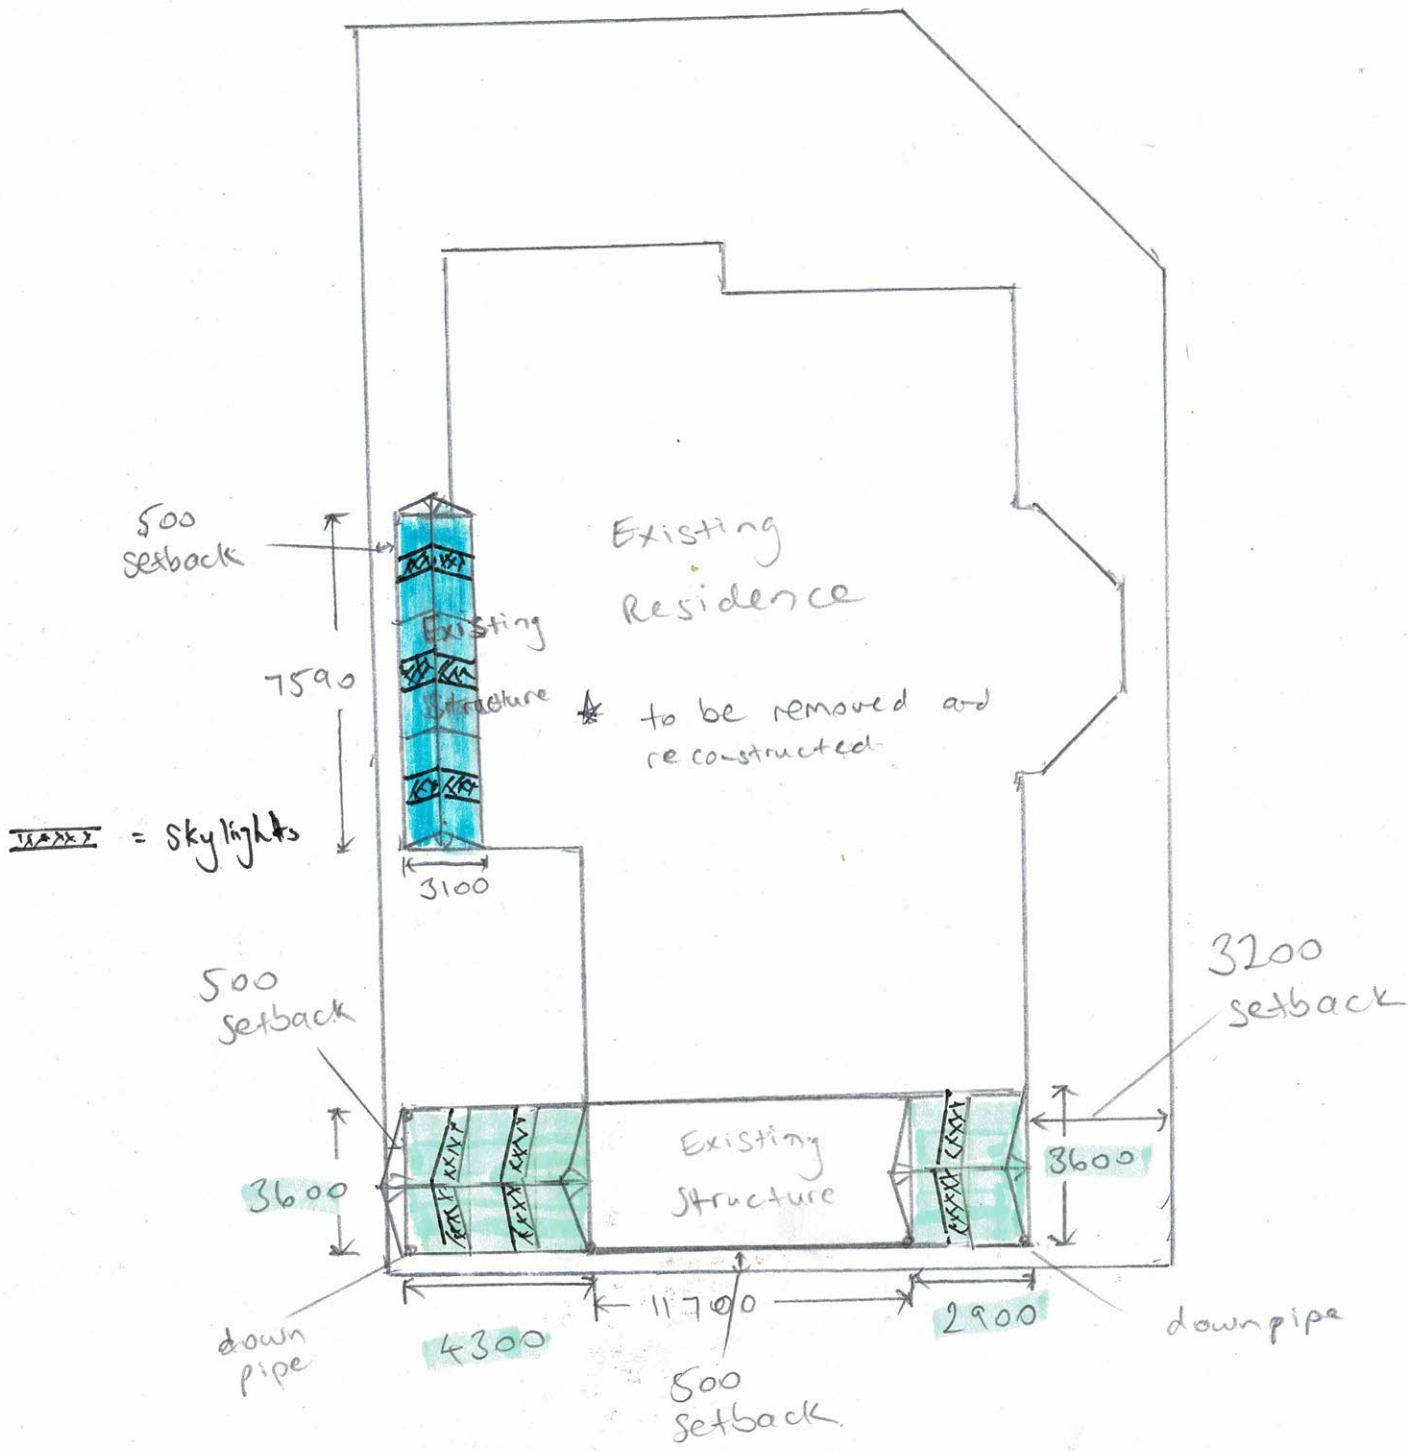 500
setback
Existing
Residence
7590
Existing
Structure
★ to be removed and
reconstructed
= Skylights
3100
500
setback
3200
setback
3600
Existing
Structure
3600
down
pipe
4300
11700
2900
downpipe
500
setback